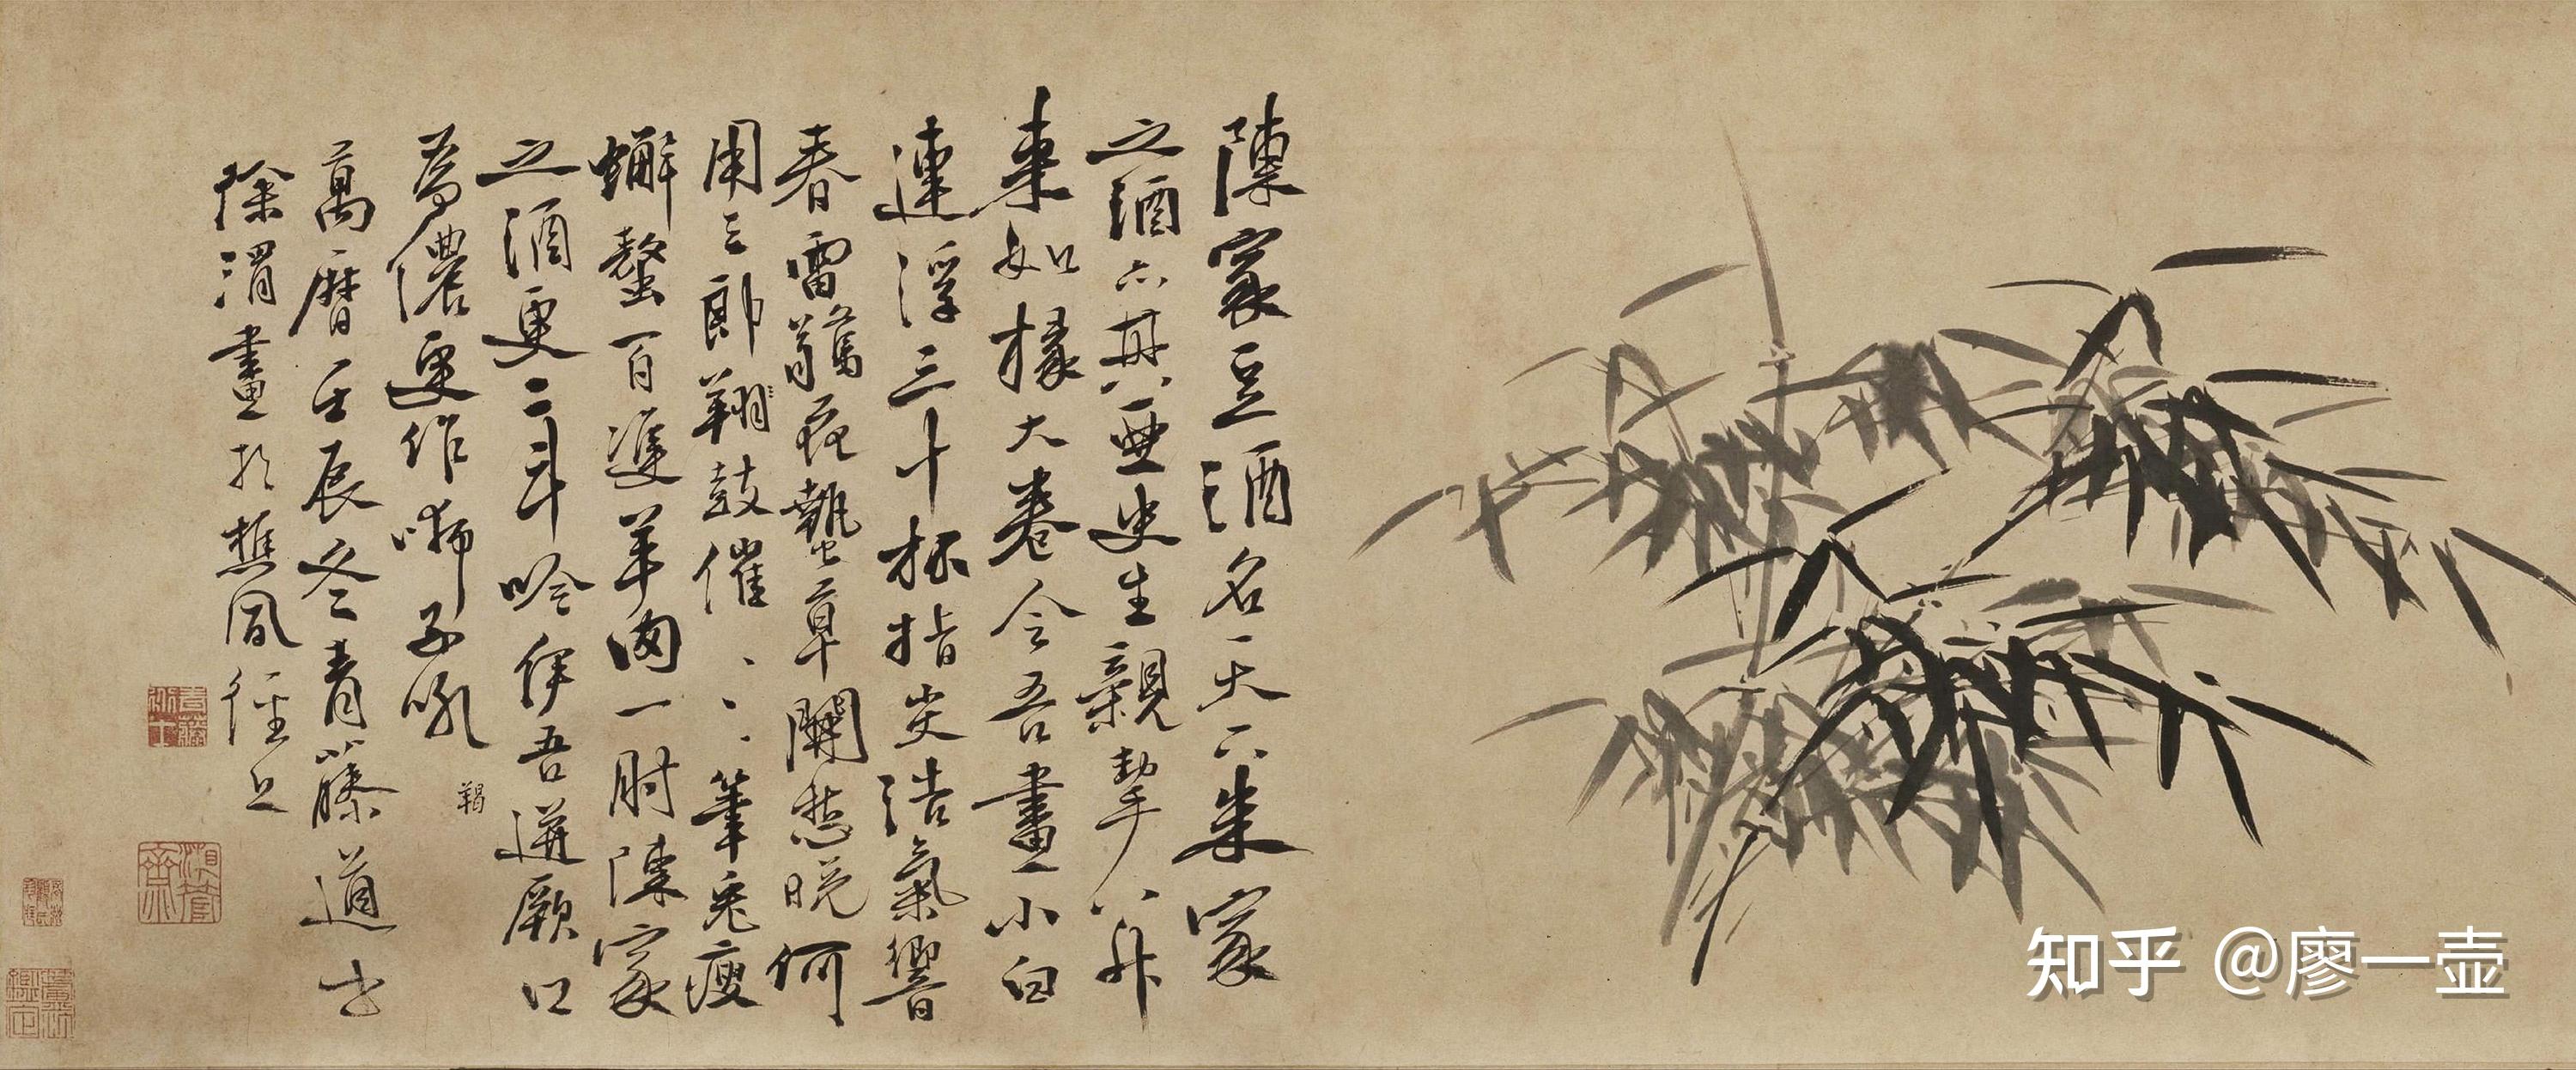 陳家豆酒名天下朱家
之酒亦其亞史生親挈八升
來如椽大卷令吾畫小白
連浮三十杯指尖浩氣響
春雷驚花蟄草開愁晚何
用三郎翔鼓催、、、筆兔瘦
蠏螯百雙羊肉一肘陳家
之酒更二斗吟伊吾迸厥口
為儂更作獅子吼
羯
萬曆壬辰冬青藤道士
徐渭畫於樵風徑上
湘管齋
知乎 @廖一壶